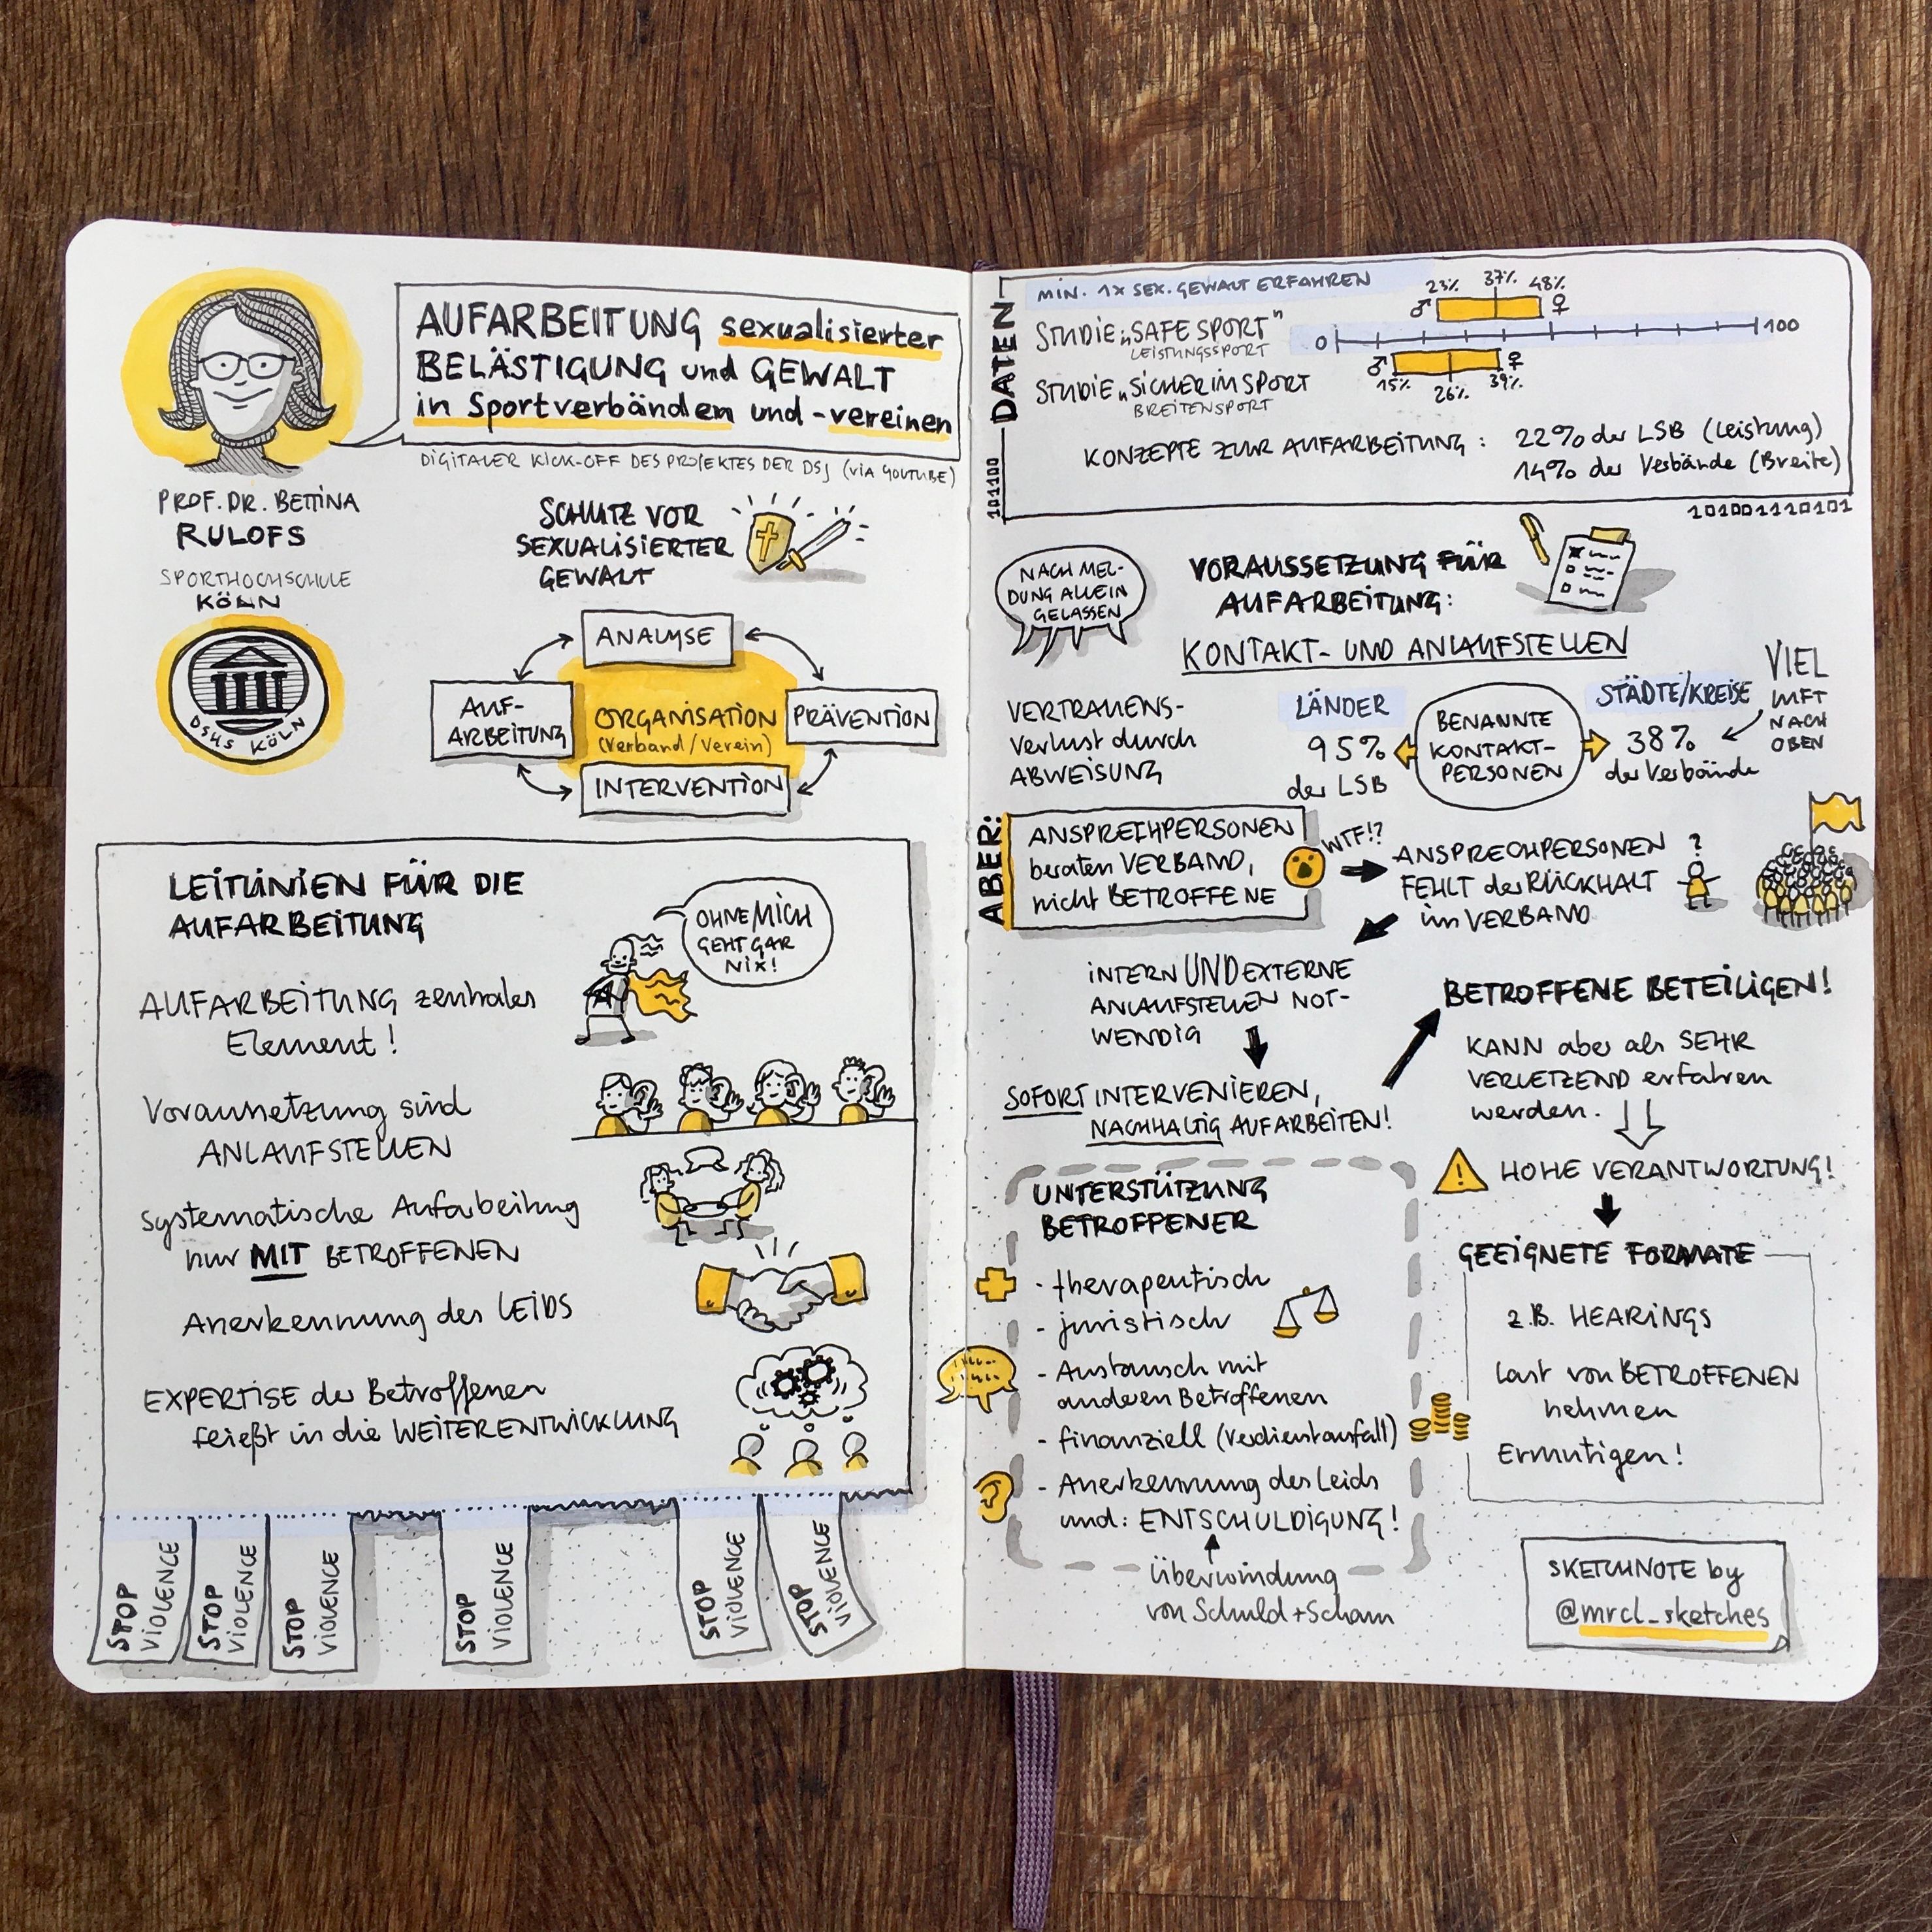 AUFARBEITUNG sexualisierter
BELÄSTIGUNG und GEWALT
in Sportverbänden und -vereinen
DIGITALER KICK-OFF DES PROJEKTES DER DSJ (VIA YOUTUBE)
PROF. DR. BETTINA
RULOFS
SPORTHOCHSCHULE
KÖLN
DSHS KÖLN
SCHUTZ VOR
SEXUALISIERTER
GEWALT
ANALYSE
AUF-
ARBEITUNG
ORGANISATION
(Verband/Verein)
PRÄVENTION
INTERVENTION
LEITLINIEN FÜR DIE
AUFARBEITUNG
OHNE MICH
GEHT GAR
NIX!
AUFARBEITUNG zentrales
Element!
Voraussetzung sind
ANLAUFSTELLEN
systematische Aufarbeitung
nur MIT BETROFFENEN
Anerkennung des LEIDS
EXPERTISE der Betroffenen
fließt in die WEITERENTWICKLUNG
STOP
VIOLENCE
STOP
VIOLENCE
STOP
VIOLENCE
STOP
VIOLENCE
STOP
VIOLENCE
STOP
VIOLENCE
DATEN
101100
MIN. 1X SEX. GEWALT ERFAHREN
23% 37% 48%
♂ ♀
STUDIE „SAFE SPORT"
LEISTUNGSSPORT
0 100
STUDIE „SICHERIMSPORT
BREITENSPORT
♂ ♀
15% 26% 39%
KONZEPTE ZUR AUFARBEITUNG: 22% der LSB (Leistung)
14% der Verbände (Breite)
101001110101
NACH MEL-
DUNG ALLEIN
GELASSEN
VORAUSSETZUNG FÜR
AUFARBEITUNG:
KONTAKT- UND ANLAUFSTELLEN
VERTRAUENS-
verlust durch
ABWEISUNG
LÄNDER
95%
der LSB
BENANNTE
KONTAKT-
PERSONEN
STÄDTE/KREISE
38%
der Verbände
VIEL
LUFT
NACH
OBEN
ABER:
ANSPRECHPERSONEN
beraten VERBAND,
nicht BETROFFENE
WTF!?
ANSPRECHPERSONEN
FEHLT der RÜCKHALT
im VERBAND
?
INTERN UND EXTERNE
ANLAUFSTELLEN NOT-
WENDIG
SOFORT INTERVENIEREN,
NACHHALTIG AUFARBEITEN!
BETROFFENE BETEILIGEN!
KANN aber als SEHR
VERLETZEND erfahren
werden.
! HOHE VERANTWORTUNG!
GEEIGNETE FORMATE
z.B. HEARINGS
Last von BETROFFENEN
nehmen
Ermutigen!
UNTERSTÜTZUNG
BETROFFENER
- therapeutisch
- juristisch
- Austausch mit
anderen Betroffenen
- finanziell (Verdienstausfall)
- Anerkennung des Leids
und: ENTSCHULDIGUNG!
Überwindung
von Schuld + Scham
SKETCHNOTE by
@mrcl_sketches